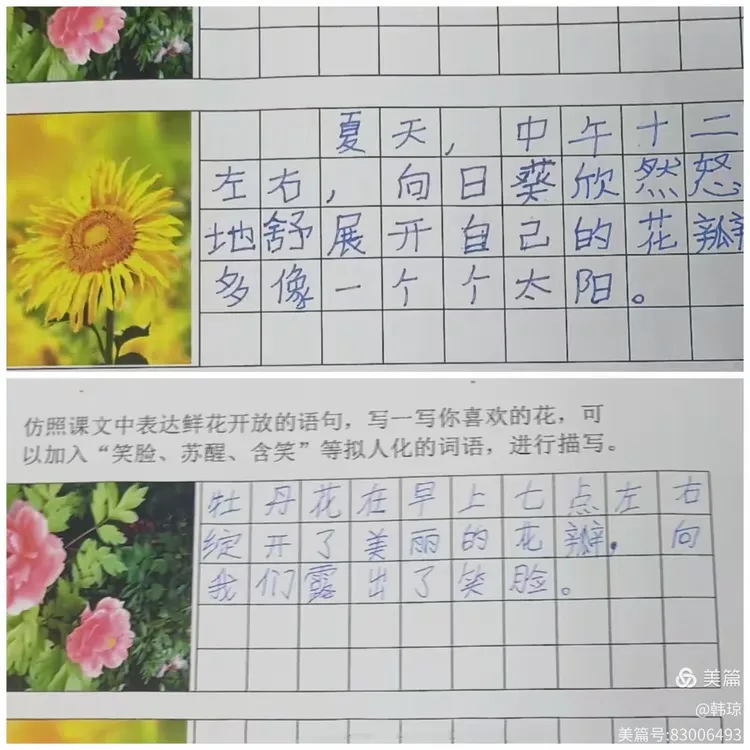 夏天，中午十二
左右，向日葵欣然怒
地舒展开自己的花瓣
多像一个个太阳。
仿照课文中表达鲜花开放的语句，写一写你喜欢的花，可
以加入“笑脸、苏醒、含笑”等拟人化的词语，进行描写。
牡丹花在早上七点左右
绽开了美丽的花瓣。向
我们露出了笑脸。
美篇
@韩琼
美篇号:83006493